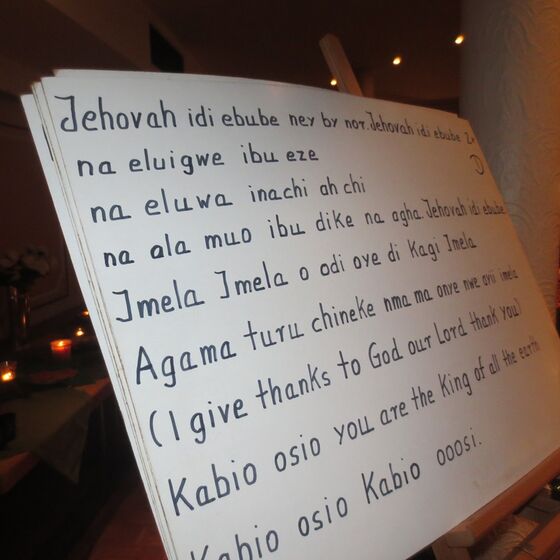 Jehovah idi ebube ney by nor. Jehovah idi ebube 2x
na eluigwe ibu eze
na eluwa inachi ah chi
na ala muo ibu dike na agha. Jehovah idi ebube
Imela Imela o odi oye di Kagi Imela
Agama turu chineke nma ma onye nwe ovii imela
(I give thanks to God our Lord thank you)
Kabio osio you are the King of all the earth
Kabio osio Kabio ooosi.